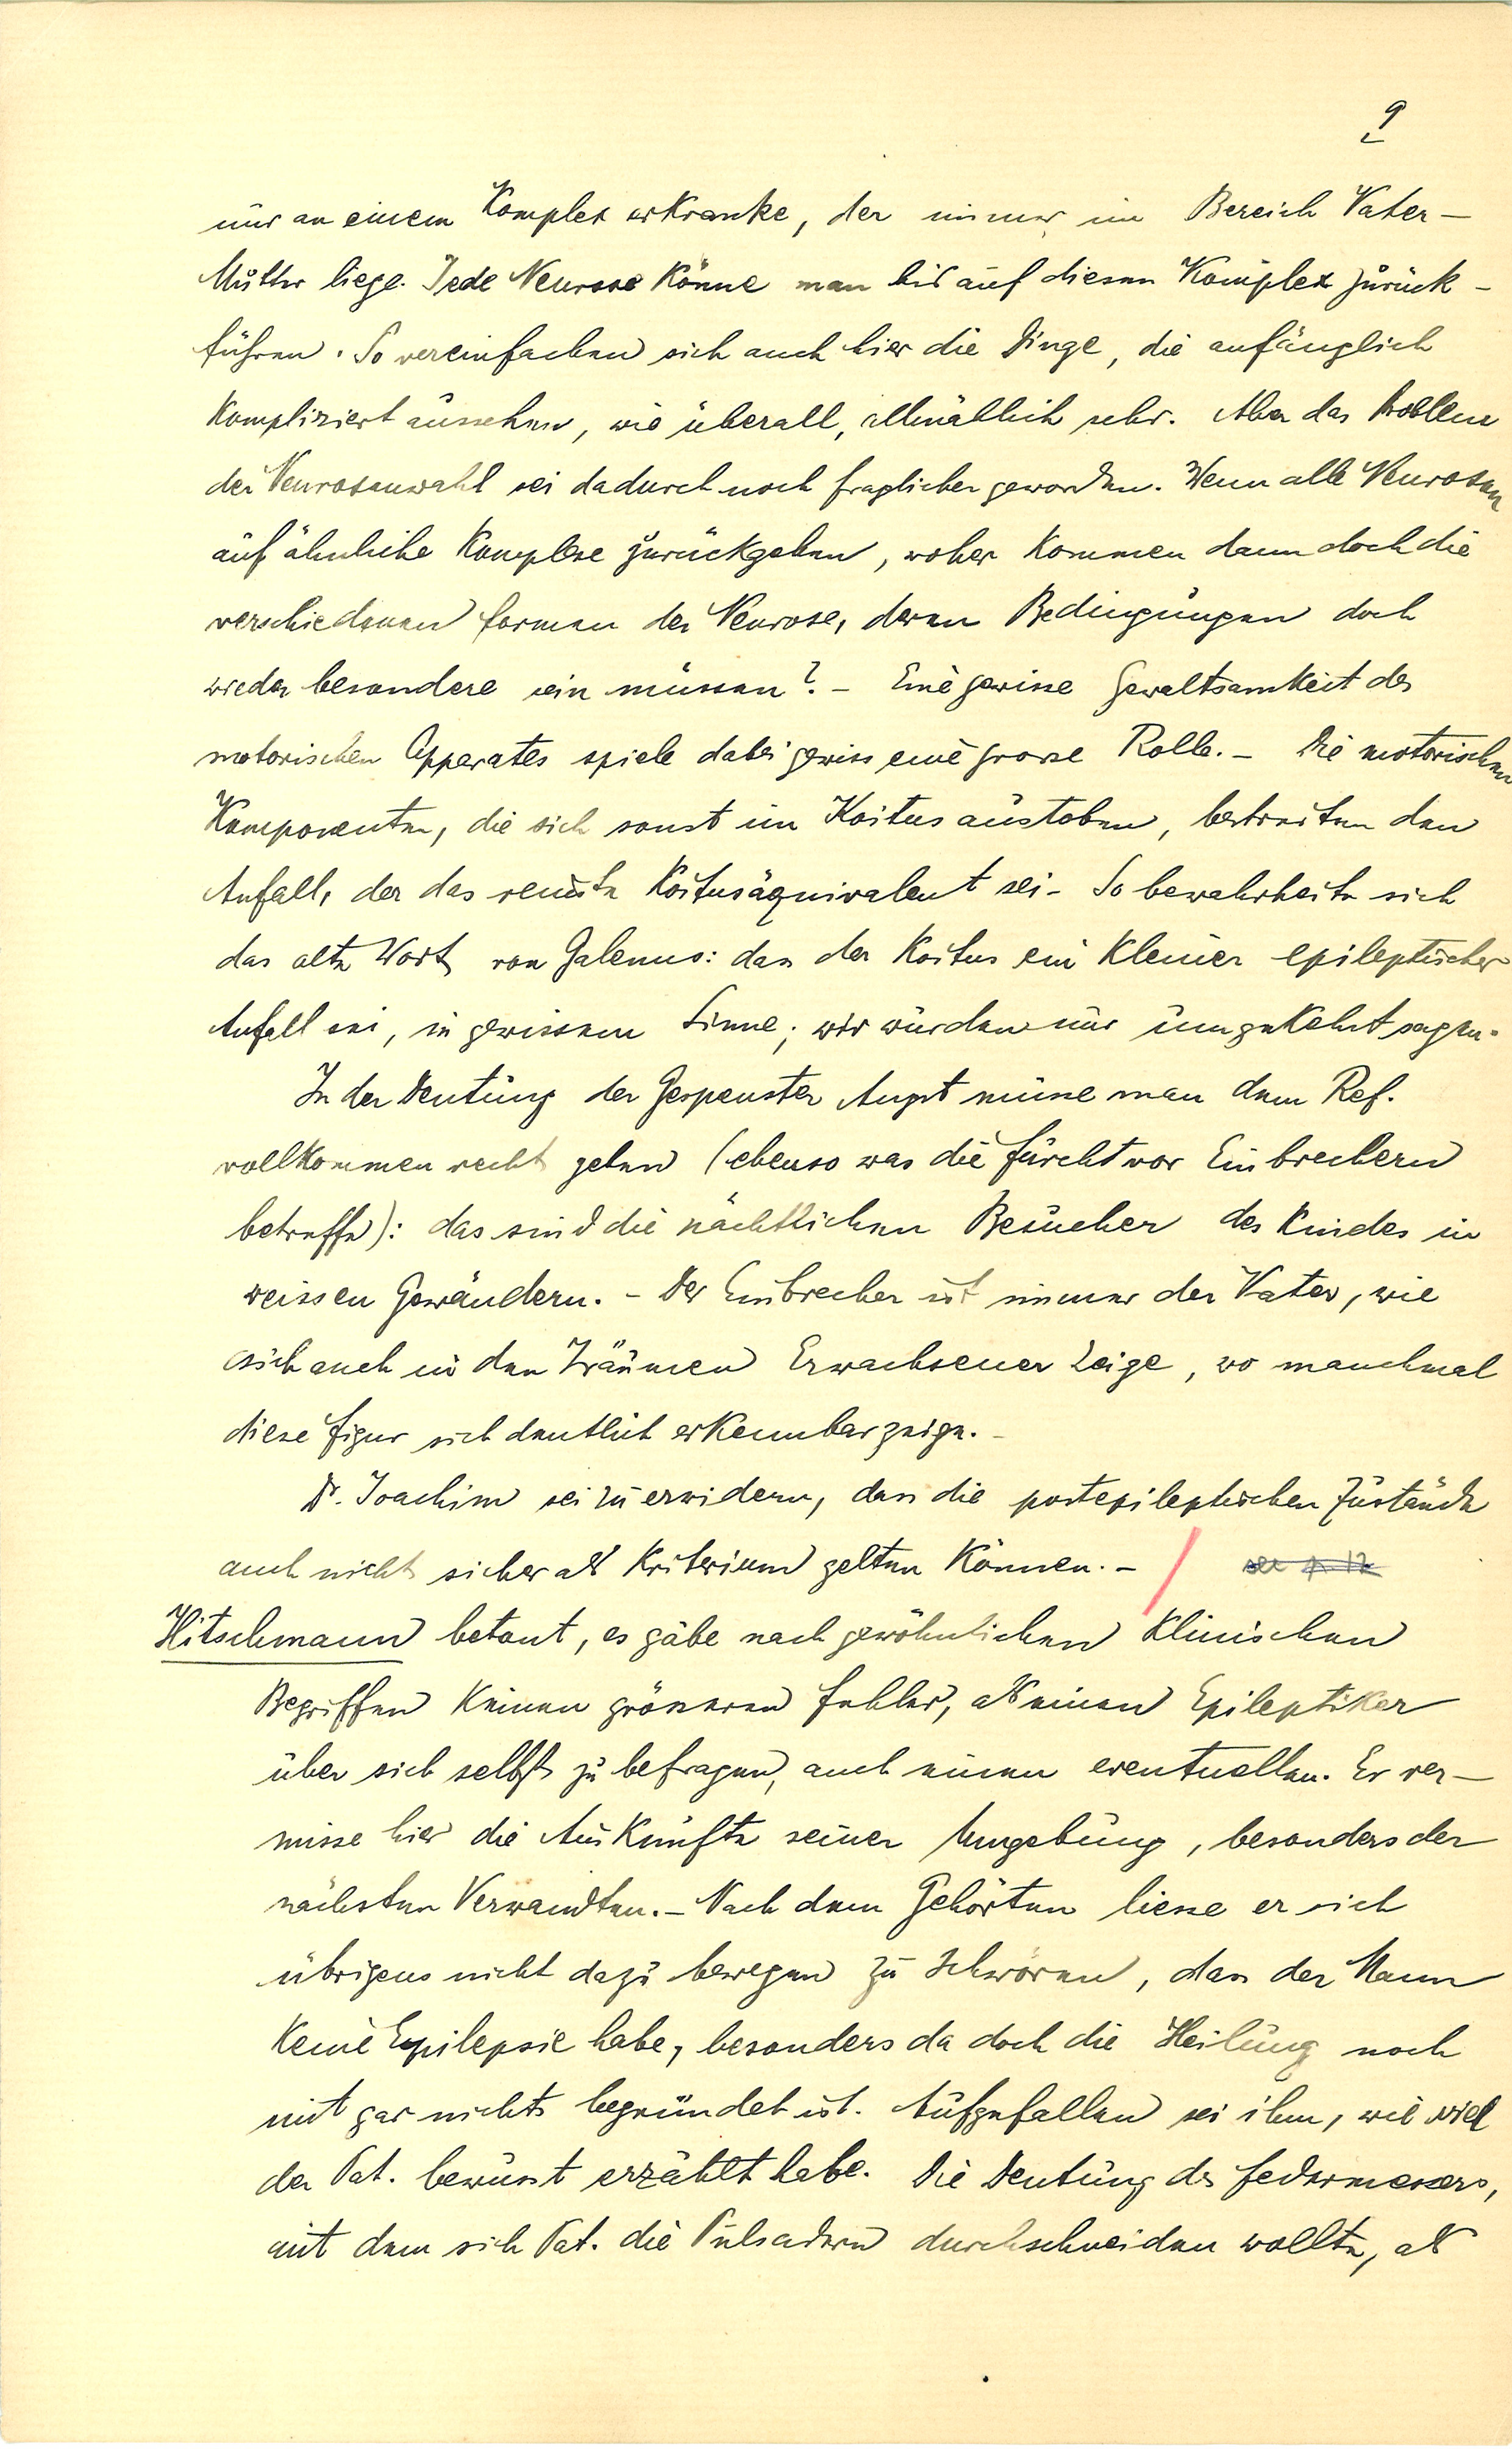 9
nur an einem Komplex erkranke, der immer im Bereich Vater-
Mutter liege. Jede Neurose könne man bis auf diesen Komplex zurück-
führen. So vereinfachen sich auch hier die Dinge, die anfänglich
kompliziert aussehen, wie überall, allmählich sehr. Aber das Problem
der Neurosenwahl sei dadurch noch fraglicher geworden. Wenn alle Neurosen
auf ähnliche Komplexe zurückgehen, woher kommen dann doch die
verschiedenen Formen der Neurose, deren Bedingungen doch
wieder besondere sein müssen? – Eine gewisse Gewaltsamkeit des
motorischen Apparates spiele dabei gewiss eine grosse Rolle. – Die motorischen
Komponenten, die sich sonst im Koitus austoben, bestreiten den
Anfall, der das reinste Koitusäquivalent sei – So bewahrheite sich
das alte Wort von Galenus: dass der Koitus ein kleiner epileptischer
Anfall sei, in gewissem Sinne; wir würden nur umgekehrt sagen.
In der Deutung der Gespenster Angst müsse man dem Ref.
vollkommen recht geben (ebenso was die Furcht vor Einbrechern
betreffe): das sind die nächtlichen Besucher des Kindes in
weissen Gewändern. – Der Einbrecher ist immer der Vater, wie
sich auch in den Träumen Erwachsener zeige, wo manchmal
diese Figur sich deutlich erkennbar zeige. –
Dr. Joachim sei zu erwidern, dass die postepileptischen Zustände
auch nicht sicher als Kriterium gelten können. –
Hitschmann betont, es gäbe nach gewöhnlichen klinischen
Begriffen keinen grösseren Fehler, als einen Epileptiker
über sich selbst zu befragen, auch einen eventuellen. Er ver-
misse hier die Auskünfte seiner Umgebung, besonders der
nächsten Verwandten. – Nach dem Gehörten liesse er sich
übrigens nicht dazu bewegen zu schwören, dass der Mann
keine Epilepsie habe, besonders da doch die Heilung noch
mit gar nichts begründet ist. Aufgefallen sei ihm, wie viel
der Pat. bewusst erzählt habe. Die Deutung des Federmessers,
mit dem sich Pat. die Pulsadern durchschneiden wollte, als